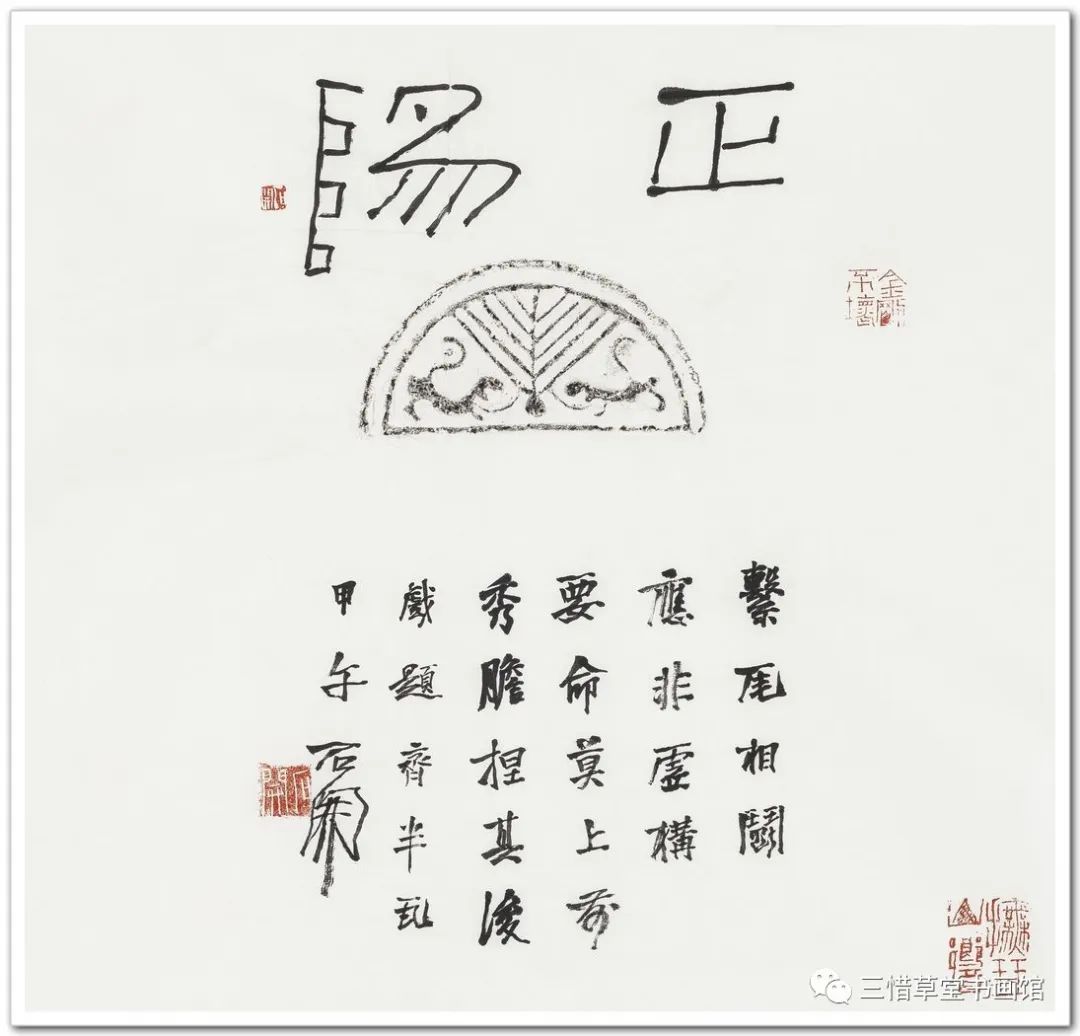 正陽
金剛不壞
繫尾相鬪
應非虛構
要命莫上前
秀膽捏其後
戲題齊半瓦
甲午石開
石開
三惜草堂书画馆